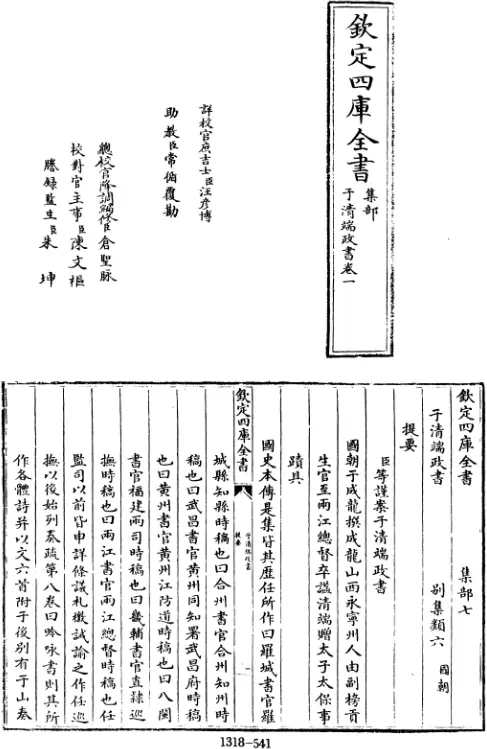 欽定四庫全書
集部
于清端政書卷一
詳校官庶吉士臣汪彥博
助教臣常循覆勘
總校官降調編修臣倉聖脉
校對官主事臣陳文樞
謄錄監生臣朱坤
欽定四庫全書 集部七
于清端政書 別集類六 國朝
提要
臣等謹案于清端政書
國朝于成龍撰成龍山西永寧州人由副榜貢
生官至兩江總督卒諡清端贈太子太保事
蹟具
國史本傳是集皆其歷任所作曰羅城書官羅
欽定四庫全書
于清端政書
提要
一
城縣知縣時稿也曰合州書官合州知州時
稿也曰武昌書官黃州同知署武昌府時稿
也曰黃州書官黃州江防道時稿也曰八閩
書官福建兩司時稿也曰畿輔書官直隸巡
撫時稿也曰兩江書官兩江總督時稿也任
監司以前皆申詳條議札檄誡諭之作任巡
撫以後始列奏疏第八卷曰吟咏書則其所
作各體詩并以文六首附于後別有于山奏
1318-541